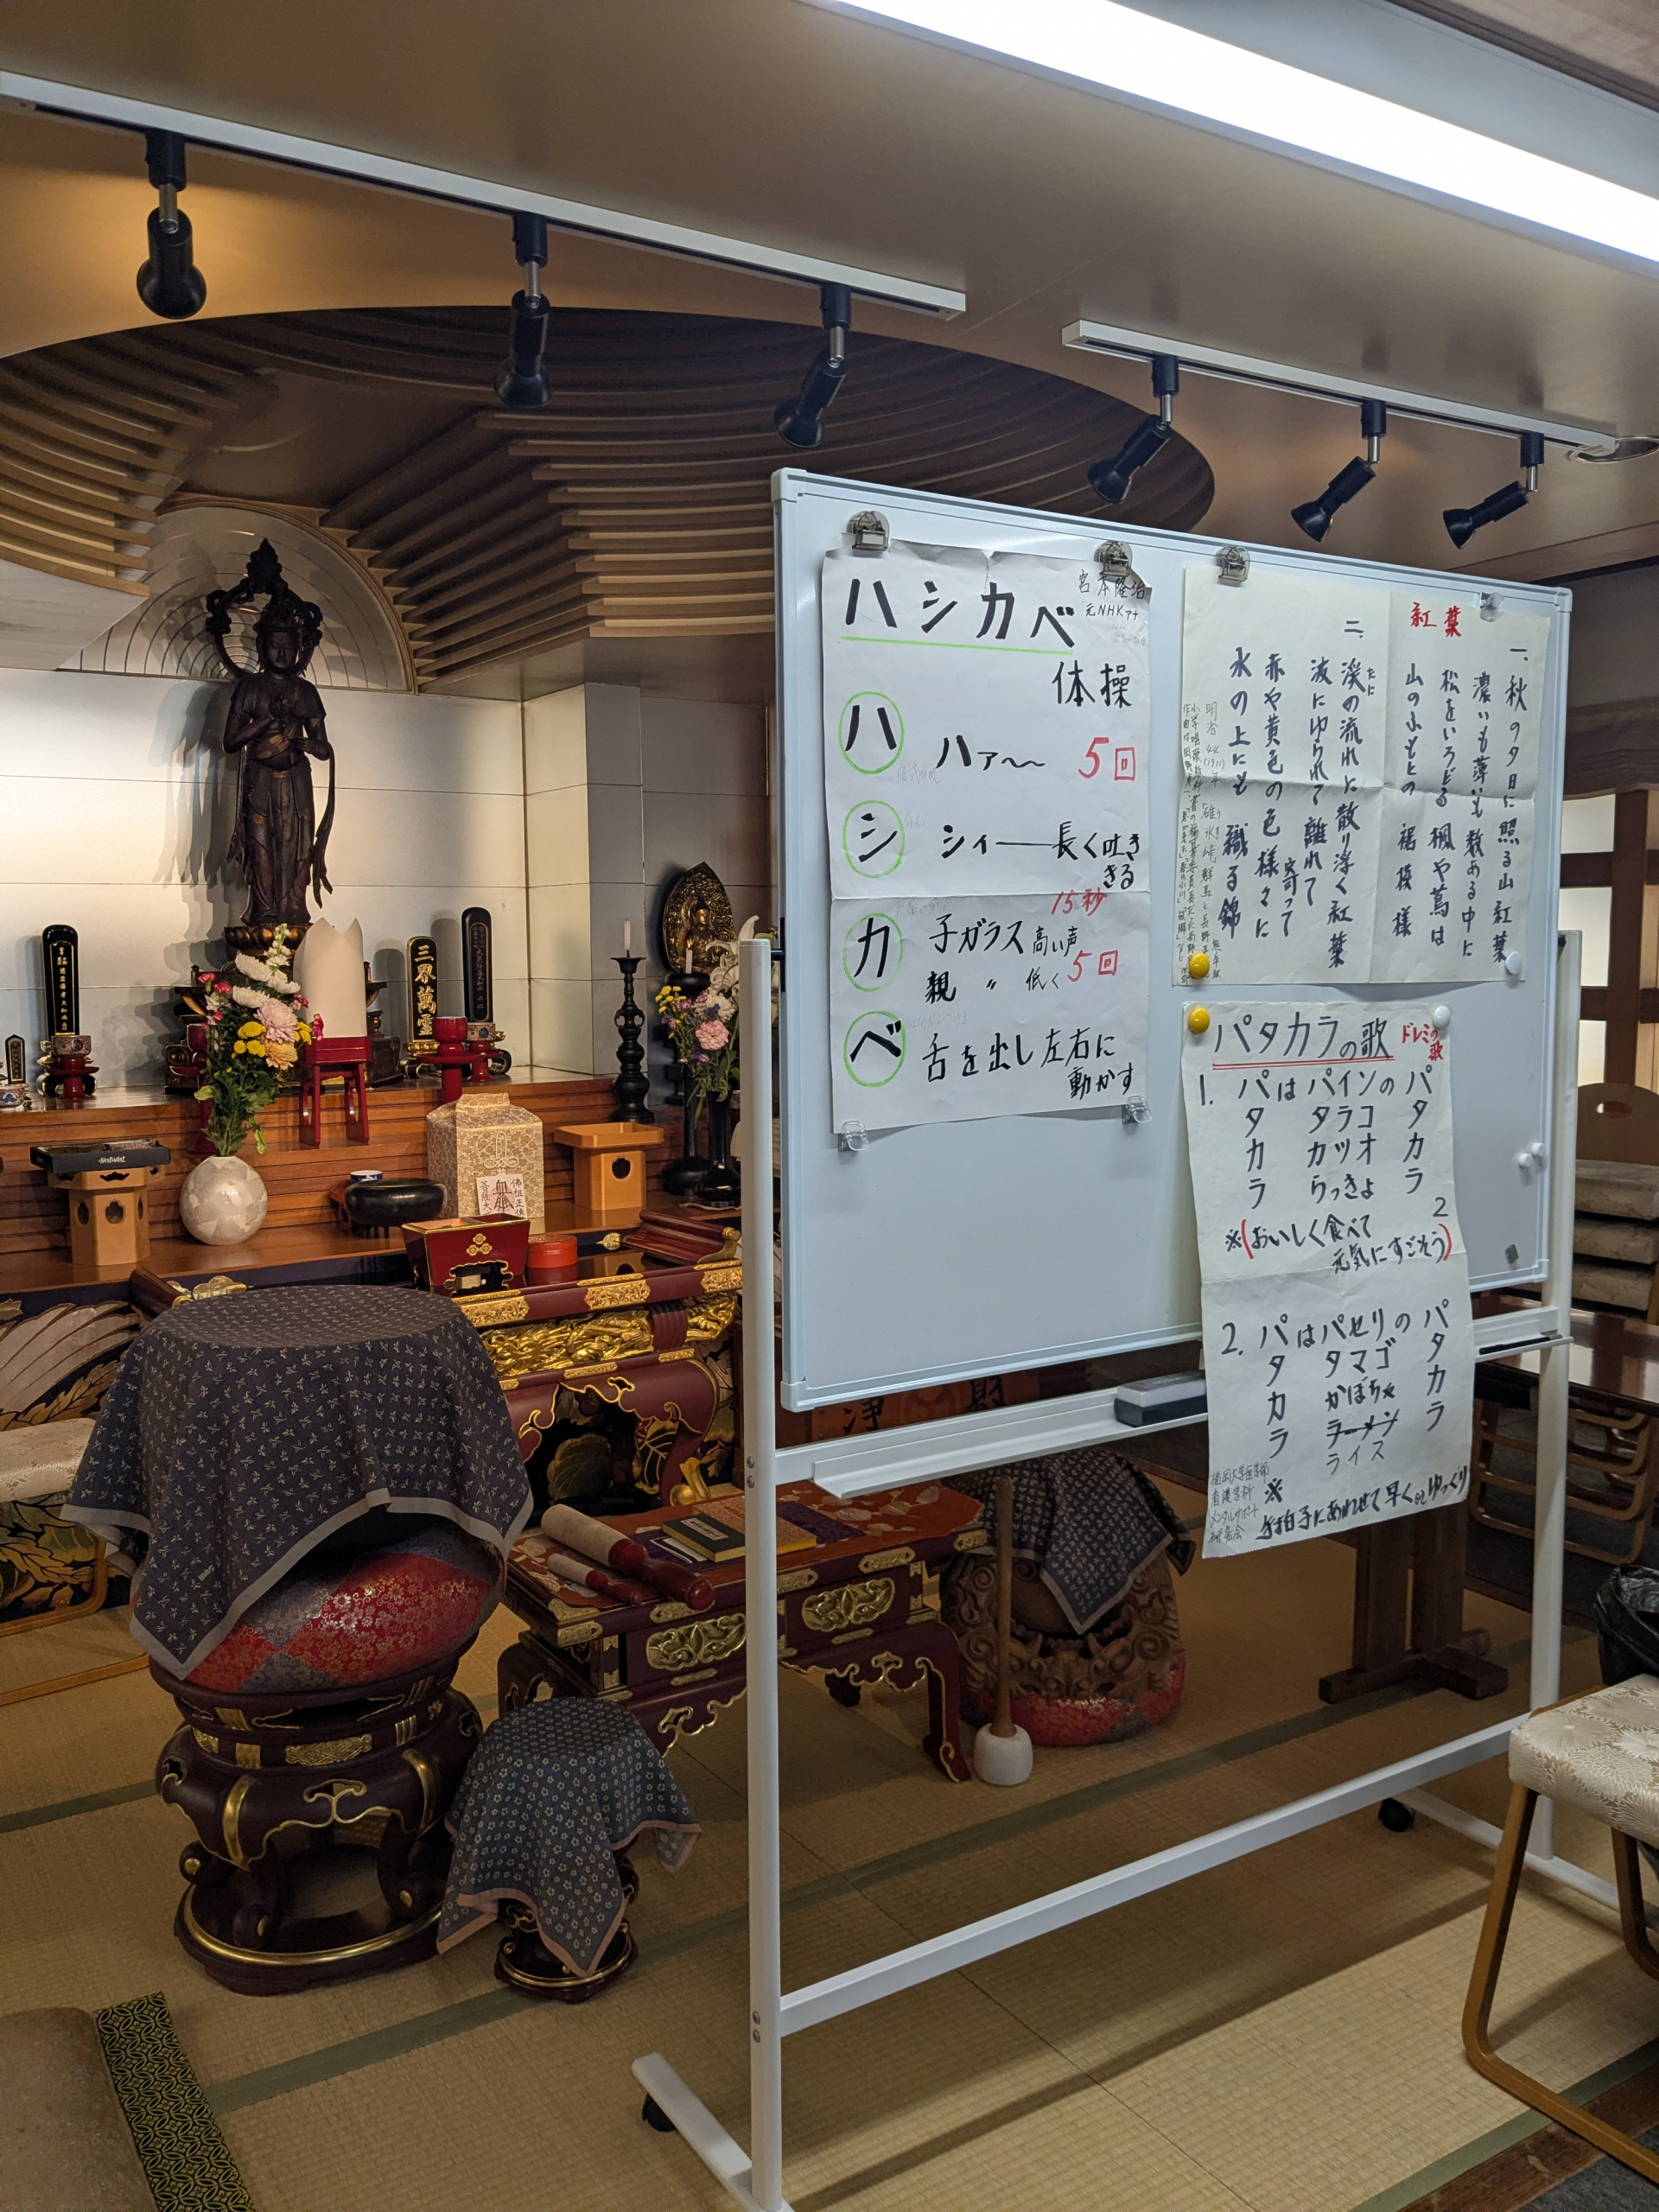 ハシカベ
体操
宮本隆治
元NHKアナ
ハ ハァ〜〜 5回
シ シィ――長く吐き
きる
15秒
カ 子ガラス 高い声
親 〃 低く 5回
ベ 舌を出し左右に
動かす
紅葉
一、秋の夕日に照る山紅葉
濃いも薄いも数ある中に
松をいろどる楓や蔦は
山のふもとの裾模様
二、溪の流れに散り浮く紅葉
たに
波にゆられて離れて寄って
赤や黄色の色様々に
水の上にも織る錦
明治44(1911)年
パタカラの歌 ドレミの歌
1. パはパインのパ
タ タラコ タ
カ カツオ カ
ラ らっきょ ラ
※(おいしく食べて
元気にすごそう) 2
2. パはパセリのパ
タ タマゴ タ
カ かぼちゃ カ
ラ ラーメン ラ
ライス
※
手拍子にあわせて早くorゆっくり
福岡大学医学部
看護学科
メンタルサポート
研究会
三界萬霊